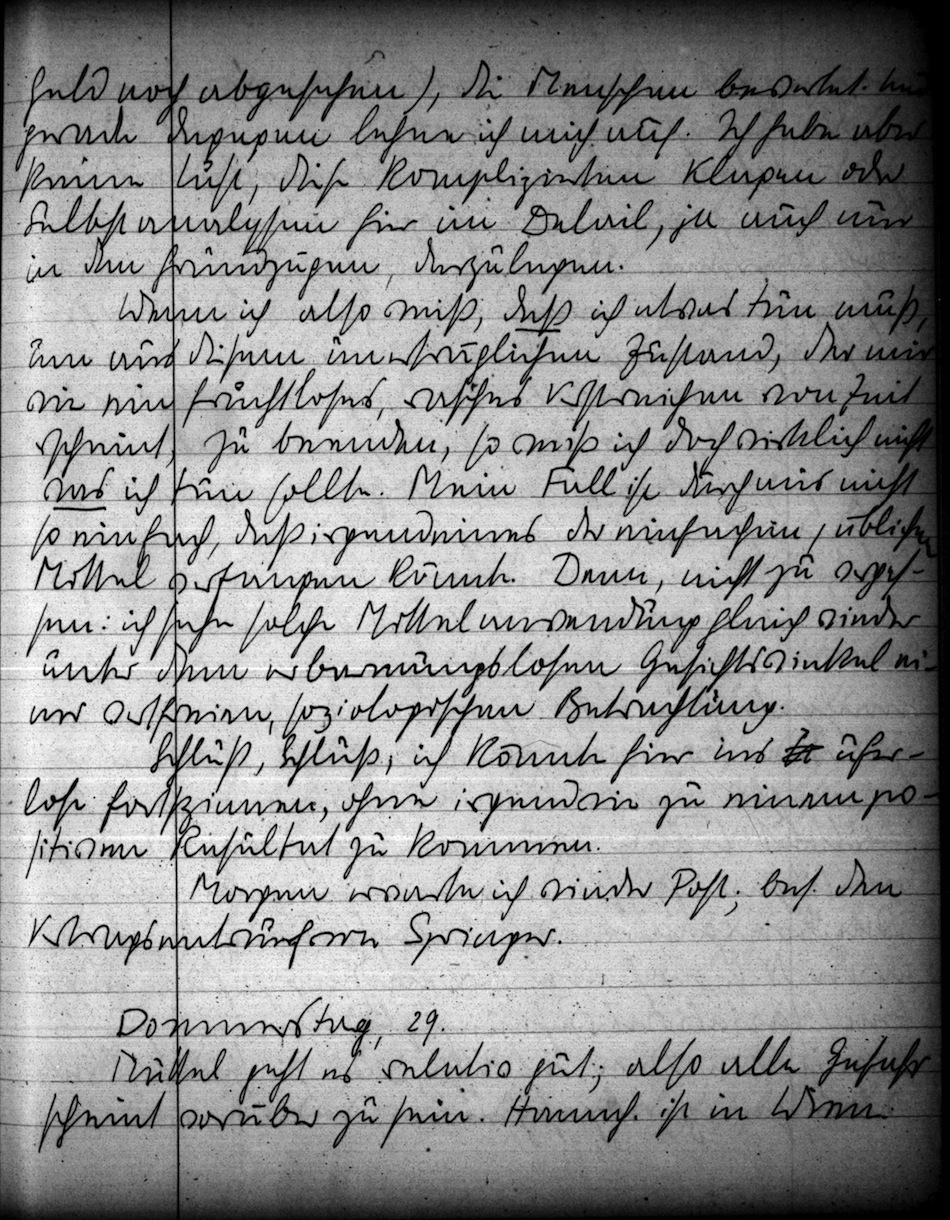 Geld noch abgesehen), die Menschen bewertet. Und
gerade dagegen lehne ich mich auf. Ich habe aber
keine Lust, diese komplizierten Klagen oder
Selbstanalysen hier im Detail, ja auch nur
in den Grundzügen, darzulegen.
Wenn ich also weiß, daß ich etwas tun muß,
um aus diesem unerträglichen Zustand, der mir
wie ein fruchtloses, rasches Verstreichen von Zeit
scheint, zu beenden, so weiß ich doch wirklich nicht
was ich tun sollte. Mein Fall ist durchaus nicht
so einfach, daß irgendeines der einfachen, üblichen
Mittel verfangen könnte. Denn, nicht zu verges-
sen: ich sehe solche Mittelanwendung gleich wieder
unter dem erbarmungslosen Gesichtswinkel ei-
ner wertfreien, soziologischen Betrachtung.
Schluß, Schluß, ich könnte hier ins ufer-
lose fortspinnen, ohne irgendwie zu einem po-
sitiven Resultat zu kommen.
Morgen erwarte ich wieder Post; bes. den
Vertragsentwurf von Springer.
Donnerstag, 29.
geht es relativ gut; also alle Gefahr
scheint vorüber zu sein. ist in Wien.